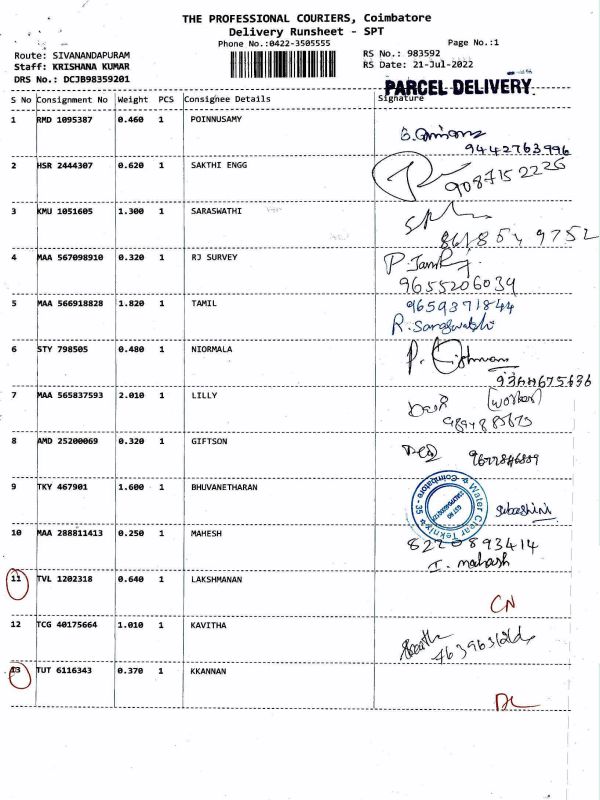 THE PROFESSIONAL COURIERS, Coimbatore
Delivery Runsheet - SPT
Phone No.:0422-3505555 Page No.:1
Route: SIVANANDAPURAM RS No.: 983592
Staff: KRISHANA KUMAR RS Date: 21-Jul-2022
DRS No.: DCJB98359201
PARCEL DELIVERY
S No Consignment No Weight PCS Consignee Details Signature
1 RMD 1095387 0.460 1 POINNUSAMY
9442763996
2 HSR 2444307 0.620 1 SAKTHI ENGG
9087152226
3 KMU 1051605 1.300 1 SARASWATHI
4 MAA 567098910 0.320 1 RJ SURVEY
9655206039
5 MAA 566918828 1.820 1 TAMIL 9659371844
R. Saraswathi
6 STY 798505 0.480 1 NIORMALA
7 MAA 565837593 2.010 1 LILLY (worker)
8 AMD 25200069 0.320 1 GIFTSON
9 TKY 467901 1.600 1 BHUVANETHARAN
Water Clear Teknix
Coimbatore - 35
Subashini
10 MAA 288811413 0.250 1 MAHESH 8220893414
I. mahash
11 TVL 1202318 0.640 1 LAKSHMANAN
CN
12 TCG 40175664 1.010 1 KAVITHA
13 TUT 6116343 0.370 1 KKANNAN
DL